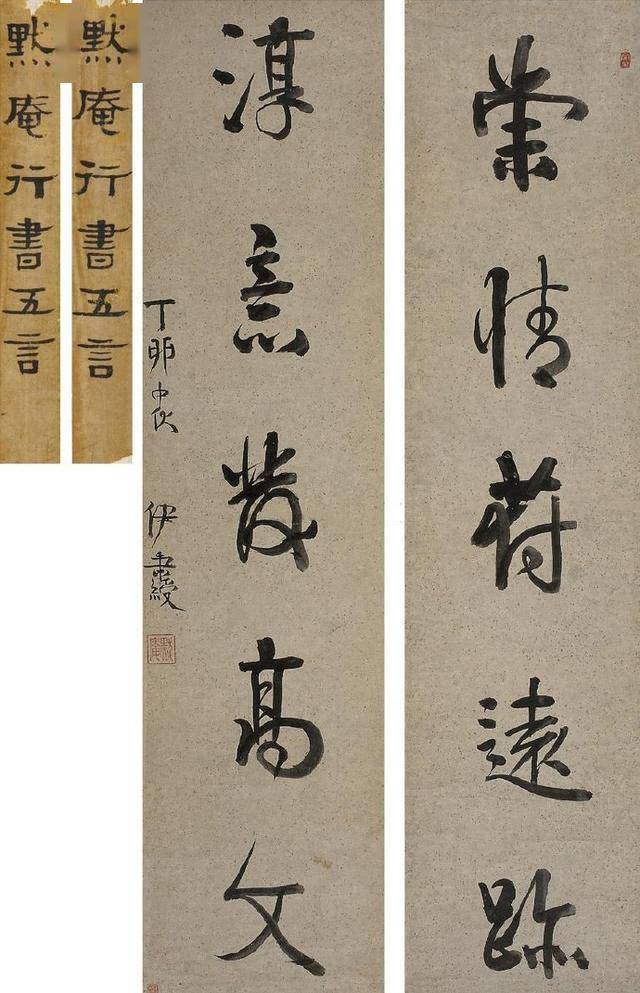 崇情符遠跡
淳意發高文
丁卯中伏 伊秉綬
默庵
默庵行書五言
默庵行書五言